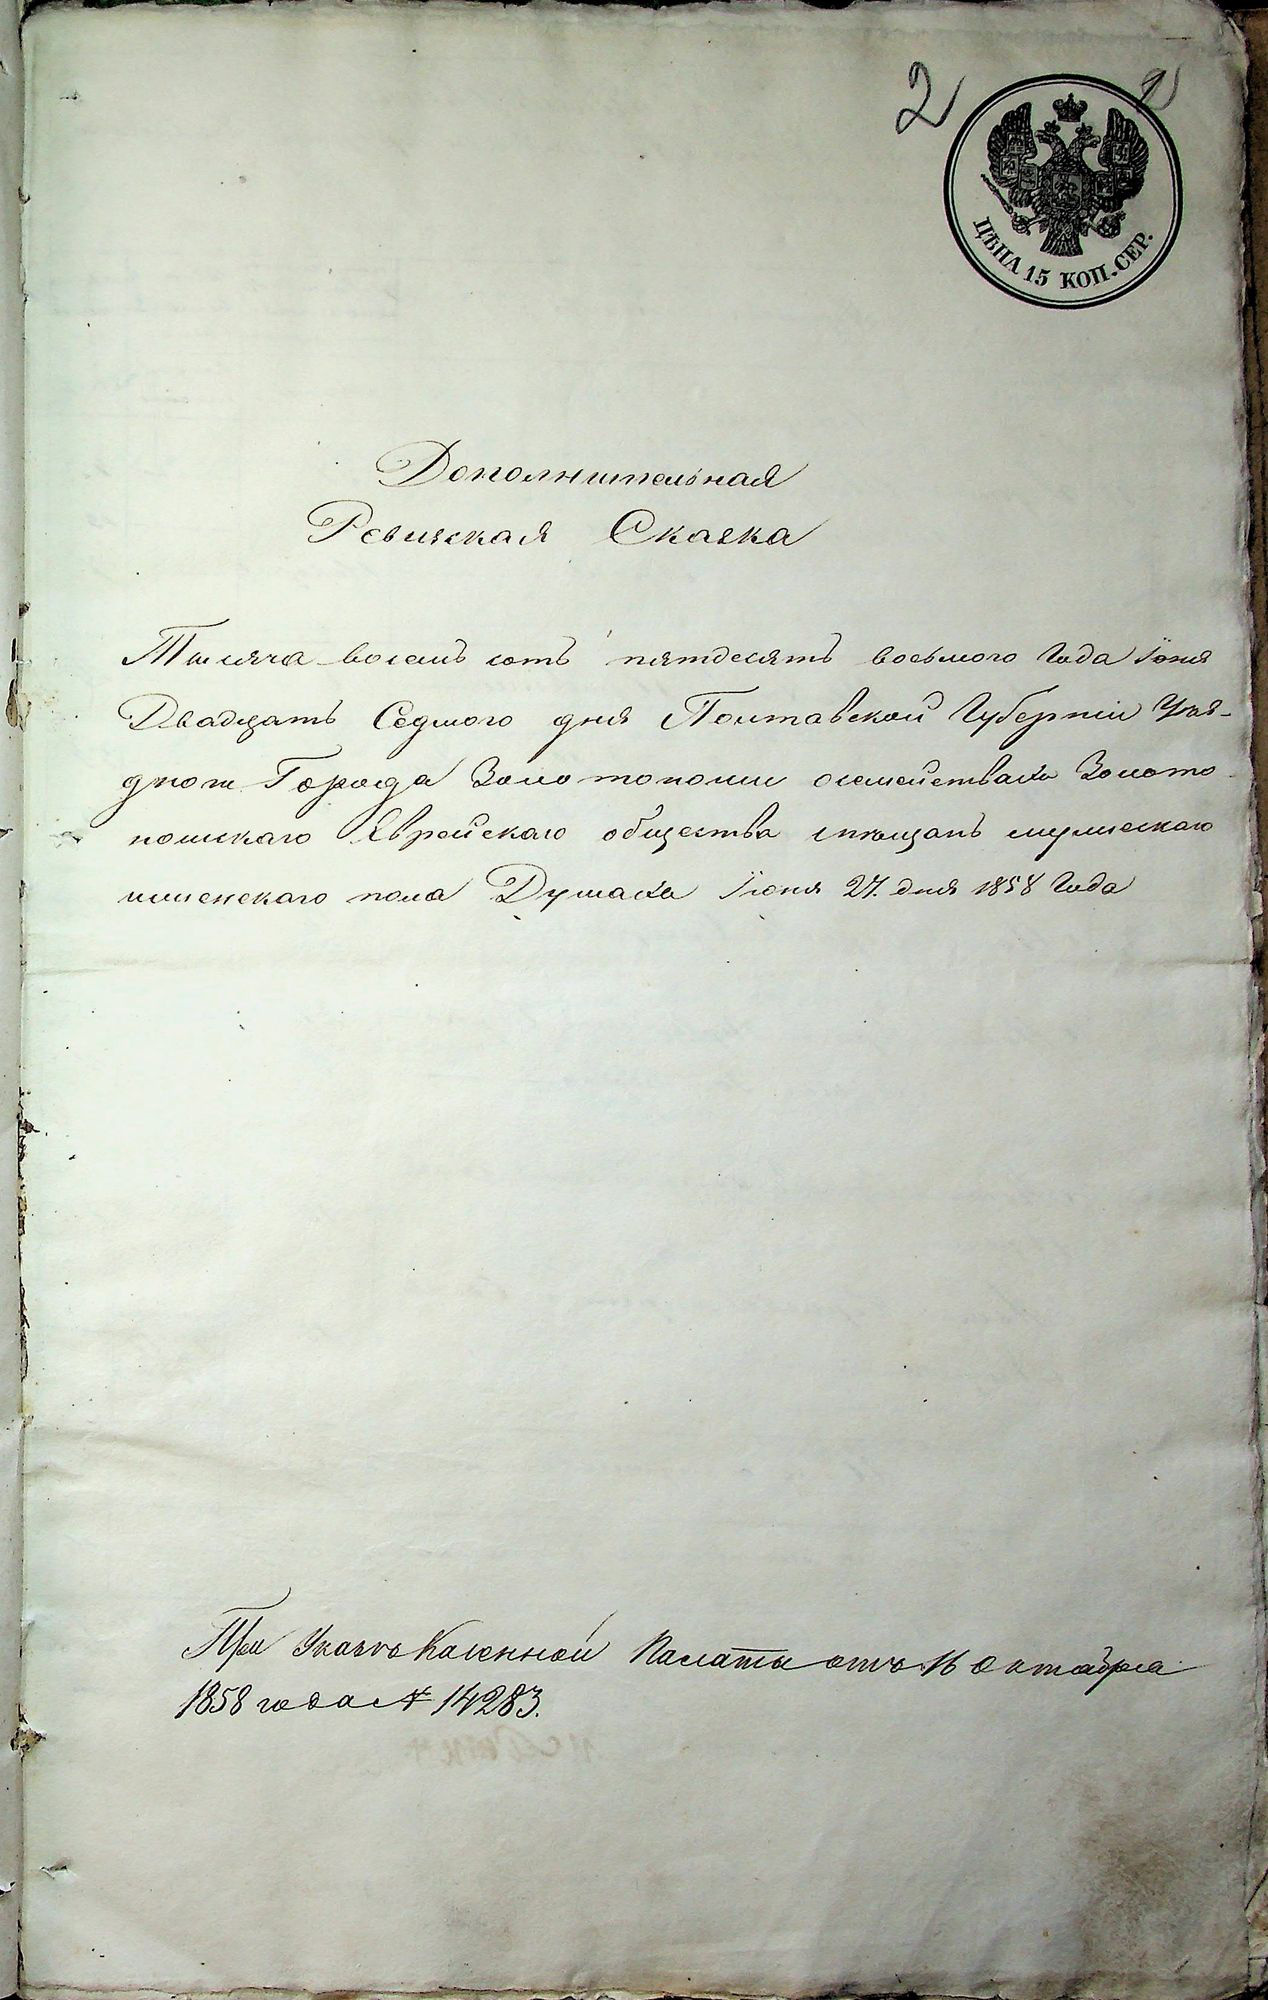 2
ЦѢНА 15 КОП. СЕР.
Дополнительная
Ревизская Сказка
Тысяча восемъ сотъ пятдесятъ восьмого Года Іюня
Двадцать Седмого дня Полтавской Губерніи Уѣз-
дного Города Золотоноши о семействахъ Золото
ношскаго Еврейскаго общества мѣщанъ мужескаго
и женскаго пола Душахъ Іюня 27. дня 1858 Года
При Указѣ Казенной Палаты отъ 16 Октября
1858 года № 14283.